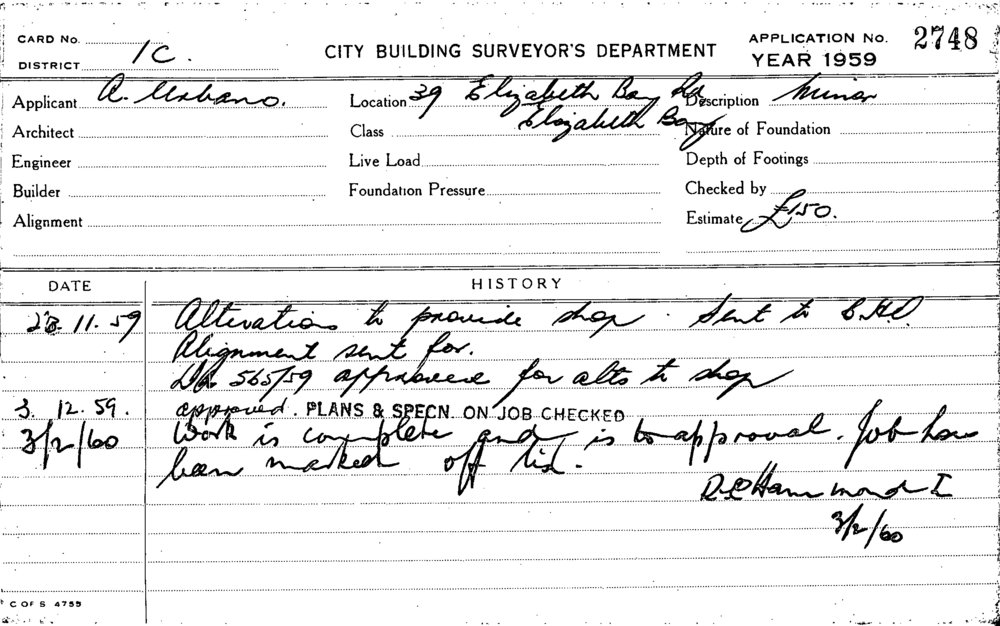 CARD No.
DISTRICT 1C.
CITY BUILDING SURVEYOR'S DEPARTMENT
APPLICATION No. 2748
YEAR 1959
Applicant A. Urbano. Location 39 Elizabeth Bay Rd Description Minor
Architect Class Elizabeth Bay Nature of Foundation
Engineer Live Load Depth of Footings
Builder Foundation Pressure Checked by
Alignment Estimate £150.
DATE HISTORY
11.59 Alterations to provide shop. Sent to
Alignment sent for.
D.A. 565/59 approved for alts to shop
3.12.59. approved. PLANS & SPECN. ON JOB CHECKED
3/2/60 Work is complete and is to approval. Job has
been marked off list.
Hammond I
3/2/60
C OF S 4755